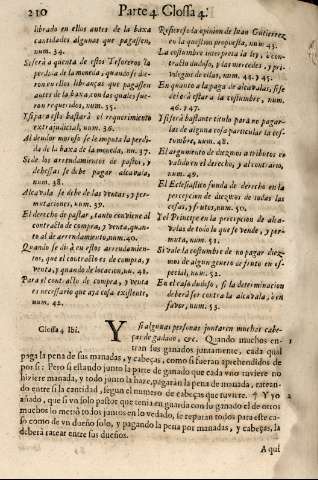 210
Parte 4. Glossa 4.
librado en ellos antes de la baxa
cantidades algunas que pagassen,
num. 34.
Si será a quenta de estos Tesoreros la
perdida de la moneda, quando se die-
ron en ellos libranças que pagassen
antes de la baxa, con las quales fue-
ron requeridos, num. 35.
Y si para esto bastará el requerimiento
extrajudicial, num. 36.
Al deudor moroso se le imputa la perdi-
da de la baxa de la moneda, nu. 37.
Si de los arrendamientos de pastos, y
dehessas se debe pagar alcavala,
num. 38.
Alcavala se debe de las ventas, y per-
mutaciones, num. 39.
El derecho de pastar, tanto conviene al
contracto de compra, y venta, quan-
to al de arrendamiento, num. 40.
Quando se dirá en estos arrendamien-
tos, que el contracto es de compra, y
venta, y quando de locacion, nu. 41.
Para el contracto de compra, y venta
es necessario que aya cosa existente,
num. 42.
Refierese la opinion de Iuan Gutierrez
en la question propuesta, num. 43.
La costumbre interpreta la ley, ò con-
tracto dudoso, y las mercedes, y pri-
vilegios de ellas, num. 44. y 45.
En quanto a la paga de alcavalas, si se
deberá estar a la costumbre, num.
46. y 47.
Y si será bastante titulo para no pagar-
las de alguna cosa particular la cos-
tumbre, num. 48.
El argumento de diezmos a tributos es
valido en el derecho, y al contrario,
num. 49.
El Eclesiastico funda de derecho en la
percepcion de diezmos de todas las
cosas, y frutos, num. 50.
Y el Principe en la percepcion de alca-
valas de todo lo que se vende, y per-
muta, num. 51.
Si vale la costumbre de no pagar diez-
mos de algun genero de fruto en es-
pecial, num. 52.
En el caso dudoso, si la determinacion
deberá ser contra la alcavala, ò en
favor, num. 53.
Glossa 4. Ibi.
Y si algunas personas juntaren muchas cabe-
ças de ganado, &c. Quando muchos en-
tran sus ganados juntamente, cada qual
paga la pena de sus manadas, y cabeças, como si fueran aprehendidos de
por si: Pero si estando junto la parte de ganado que cada vno tuviere no
hiziere manada, y todo junto la haze, pagarán la pena de manada, ratean-
do entre si la cantidad, segun el numero de cabeças que tuvire. † Y yo
añado, que si vn solo pastor que tenia en guarda con su ganado el de otros
muchos lo metió todos juntos en lo vedado, se reparan todos para este ca-
so como de vn dueño solo, y pagando la pena por manadas, y cabeças, la
deberá ratear entre sus dueños.
A qui